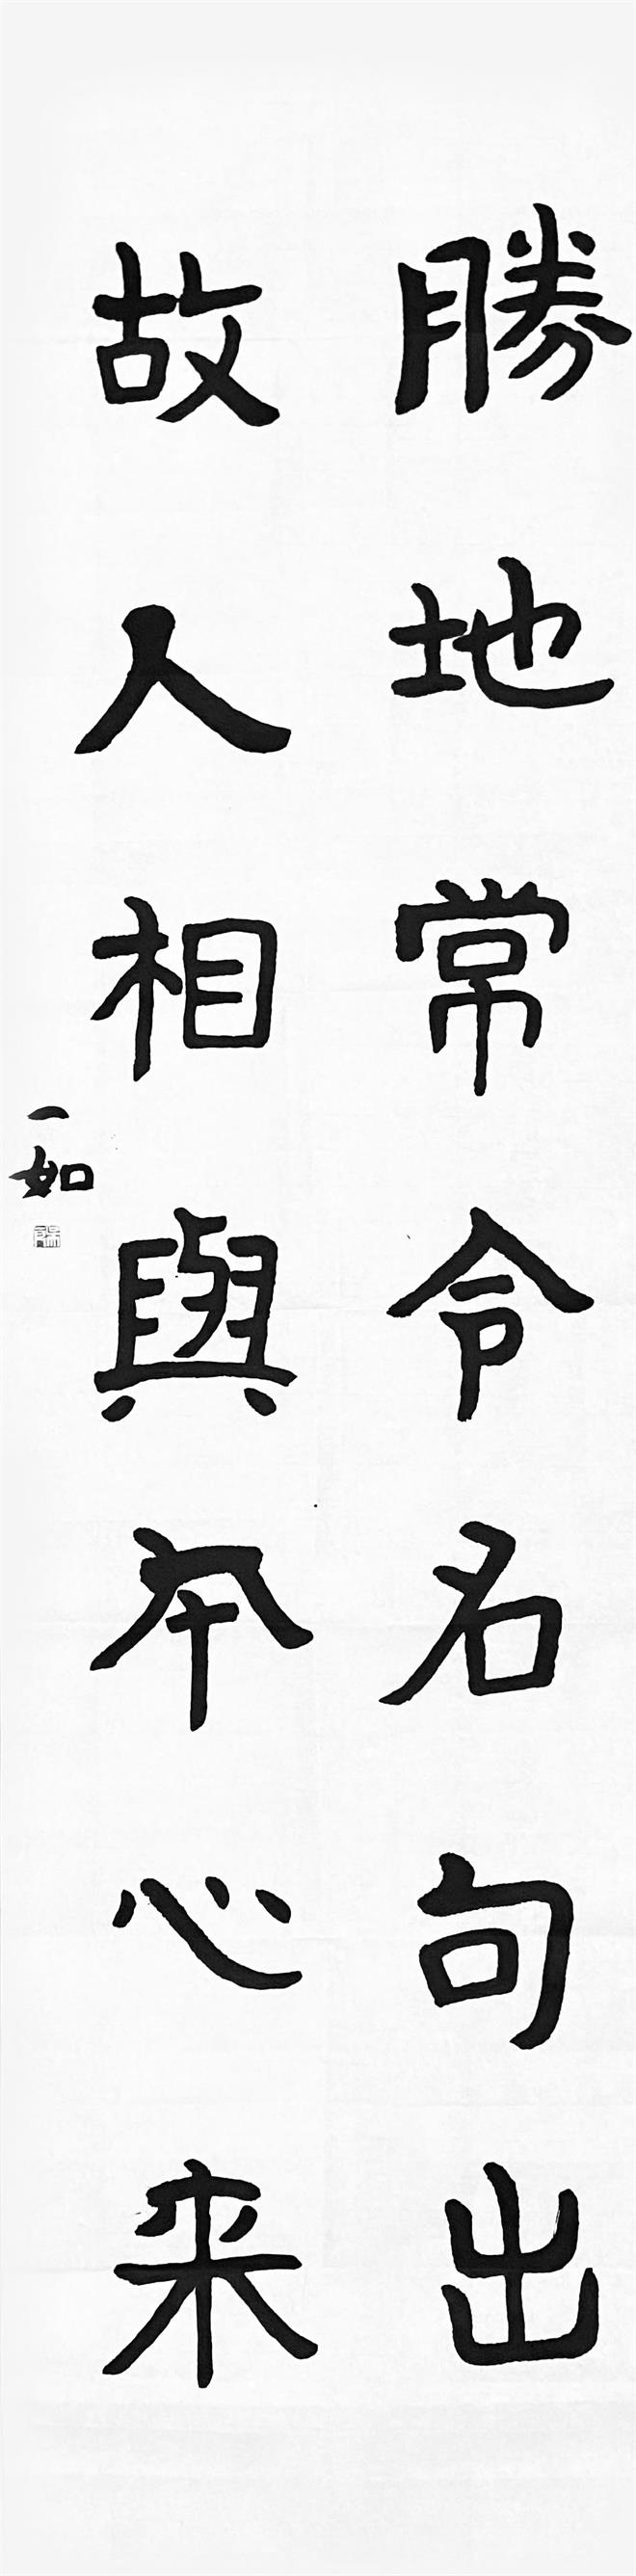 勝地常令名句出
故人相與本心来
一如